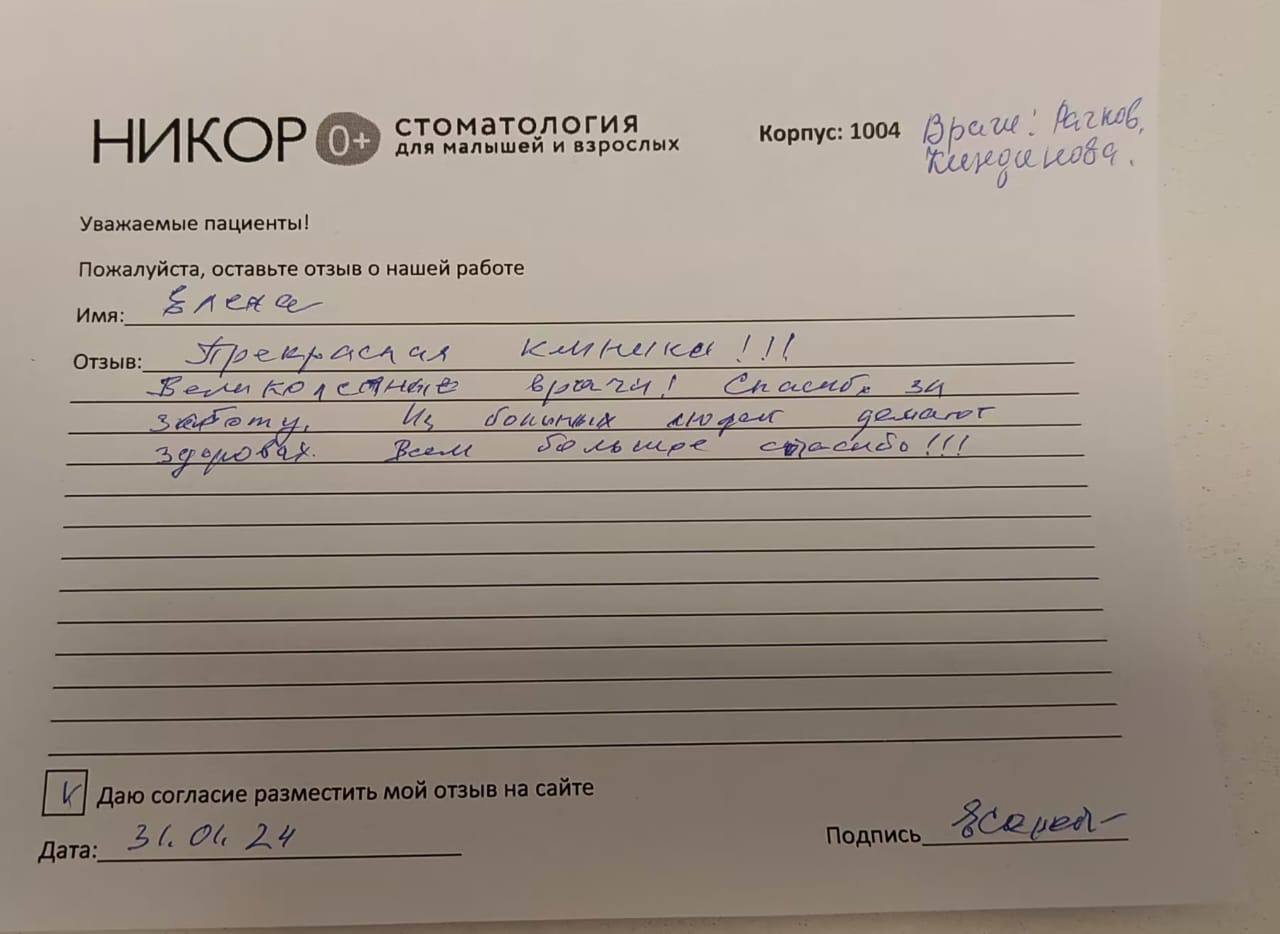 НИКОР 0+ СТОМАТОЛОГИЯ
для малышей и взрослых
Корпус: 1004
Врачи: Рачков,
Киндинова.
Уважаемые пациенты!
Пожалуйста, оставьте отзыв о нашей работе
Имя: Елена
Отзыв: Прекрасная клиника!!!
Великолепные врачи! Спасибо за
заботу. Из больных людей делают
здоровых. Всем большое спасибо!!!
Даю согласие разместить мой отзыв на сайте
Дата: 31.01.24
Подпись